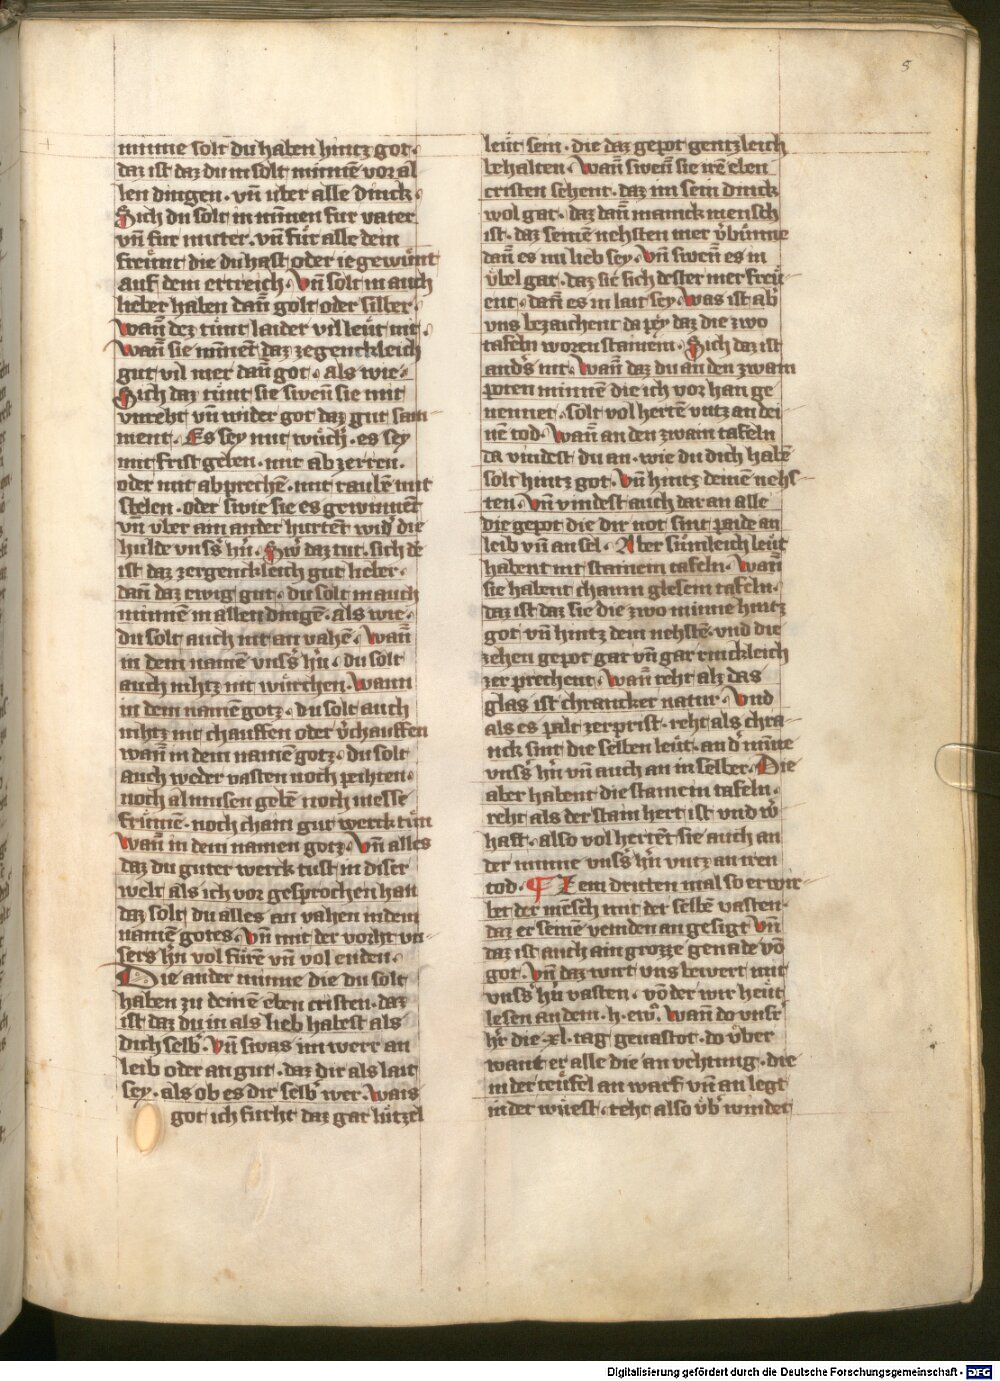 5
minne solt du haben hintz got·
daz ist daz du in solt minnē vor al
len dingen· vn̄ über alle dinck·
Sich du solt in minnen für vater
vn̄ für muter· vn̄ für alle dein
freünt die du hast oder ie gewünt
auf dem ertreich· Vn̄ solt in auch
lieber haben dan̄ golt oder silber·
Wan̄ dez tünt laider vil leüt nit·
Wan̄ sie minnēt daz zegenckleich
gut vil mer dan̄ got· als wie·
Sich daz tünt sie swen̄ sie mit
vnreht vn̄ wider got daz gut sam
ment· Es sey mit wuchˀ· es sey
mit frist geben· mit ab zerren·
oder mit ab prechē· mit raubē mit
stelen· oder swie sie es gewinnēt
vn̄ über ain ander hurtēt widˀ die
hulde vnsˀs hˀn· Swˀ daz tut· sich dē
ist daz zergenckleich gut lieber·
dan̄ daz ewig gut· du solt in auch
minnē in allen dingē· als wie·
du solt auch nit an vahē· Wan̄
in dem namē vnsˀs hˀn· du solt
auch nihtz nit würchen· Wann
in dem namē gotz· du solt auch
nihtz nit chauffen oder vˀchauffen
wan̄ in dem namē gotz· du solt
auch weder vasten noch peihten·
noch almusen gebē noch messe
frümē· noch chain gut werck tün
Wan̄ in dem namen gotz· Vn̄ alles
daz du guter werck tust in diser
welt als ich vor gesprochen han
daz solt du alles an vahen in dem
namē gotes· Vn̄ mit der vorht vn-
sers hˀn vol fürē vn̄ vol enden·
Die ander minne die du solt
haben zu deinē eben cristen· daz
ist daz du in als lieb habest als
dich selbˀ· Vn̄ swas im werr an
leib oder an gut· daz dir als lait
sey· als ob es dir selbˀ wer· Wais
got ich furht daz gar lützel
leüt sein· die daz gepot gentzleich
behalten· Wan̄ swen̄ sie irē eben
cristen sehent· daz im sein dinck
wol gat· daz dan̄ manick mensch
ist· daz seinē nehsten mer vˀbünne
dan̄ es im lieb sey· Vn̄ swen̄ es in
übel gat· daz sie sich dester mer freü-
ent· dan̄ es in lait sey· Was ist abˀ
vns bezaichent da pey daz die zwo
tafeln woren stainein· Sich daz ist
andˀs nit· Wan̄ daz du an den zwain
poten minnen die ich vor han ge
nennet· solt vol hertē vntz an dei-
nē tod· Wan̄ an den zwain tafeln
da vindest du an· wie du dich habē
solt hintz got· Vn̄ hintz deinē nehs-
ten· Vn̄ vindest auch dar an alle
die gepot die dir not sint paide an
leib vn̄ an sel· Aber sümleich leüt
habent nit stainein tafeln· Wan̄
sie habent chaum glesein tafeln·
daz ist daz sie die zwo minne hintz
got vn̄ hintz dem nehstē· vnd die
zehen gepot gar vn̄ gar rinckleich
zer prechent· Wan̄ reht alz das
glas ist chrancker natur· Vnd
als es palt zerprist· reht als chra-
nck sint die selben leüt· an dˀ minne
vnsˀs hˀn vn̄ auch an in selber· Die
aber habent die stainein tafeln·
reht als der stain hert ist vnd wˀ
haft· also vol herrēt sie auch an
der minne vnsˀs hˀn vntz an iren
tod· ¶ Zem dritten mal so erwir-
bet der mēsch mit der selbē vasten·
daz er seinē veinden an gesigt Vn̄
daz ist auch ain grozze genade vō
got· Vn̄ daz wirt vns bewert mit
vnsˀs hˀn vasten· vō der wir heüt
lesen an dem· h· ewˀ· Wan̄ do vnsˀr
hˀr die xl· tag geuastet· do über
want er alle die an vehtung· die
in der teüfel an warf vn̄ an legt
in der wüest· reht also übˀ windet
Digitalisierung gefördert durch die Deutsche Forschungsgemeinschaft - DFG